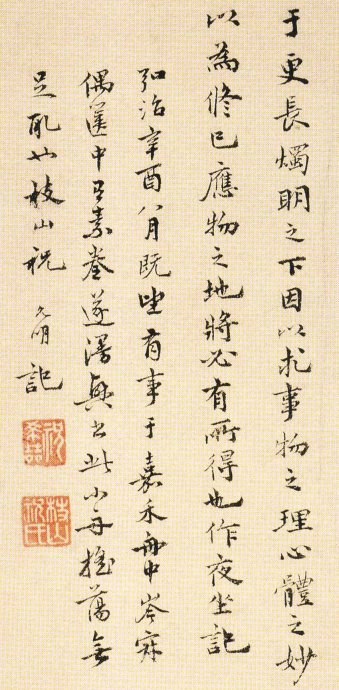 于更長燭明之下因以求事物之理心體之妙
以為修己應物之地將必有所得也作夜坐記
弘治辛酉八月既望有事于嘉禾舟中岑寂
偶篋中有素卷遂漫興書此小舟搖蕩無
足觀也枝山祝允明記
枝山